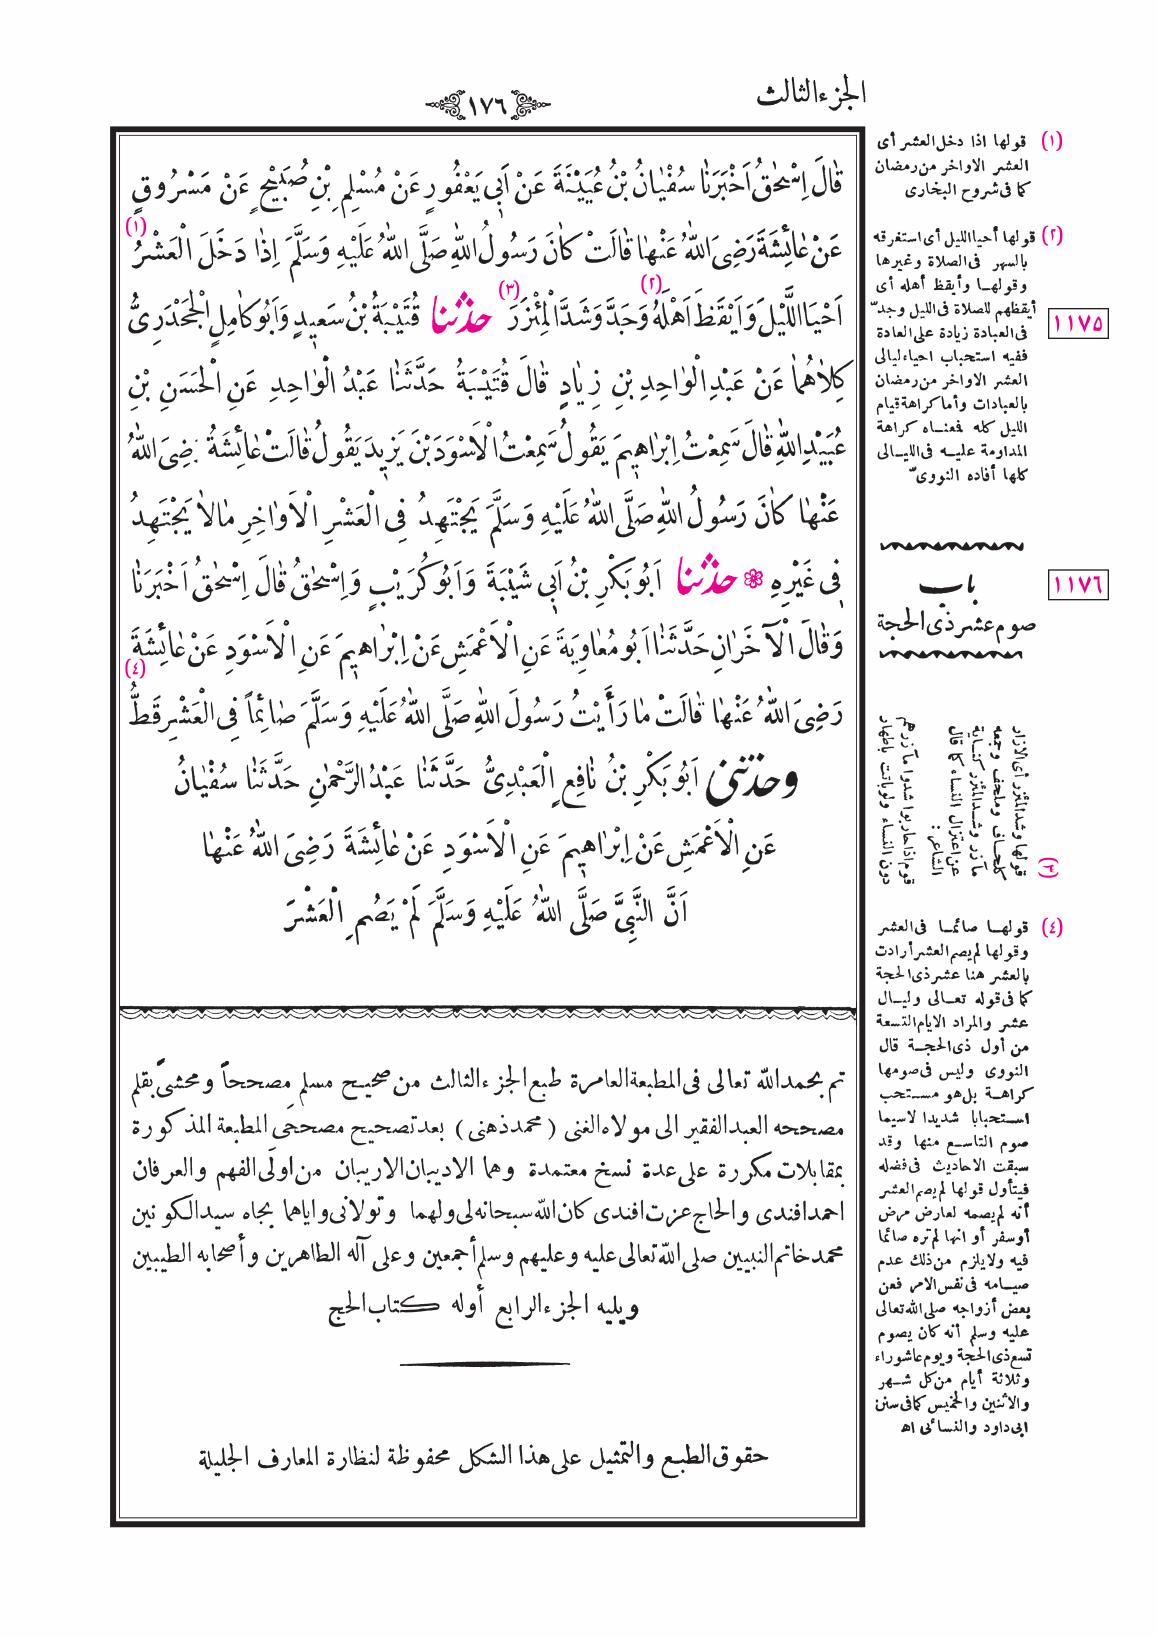 الجزء الثالث
١٧٦
قَالَ اِسْحٰقُ اَخْبَرَنَا سُفْيَانُ بْنُ عُيَيْنَةَ عَنْ اَبِى يَعْفُورٍ عَنْ مُسْلِمِ بْنِ صُبَيْحٍ عَنْ مَسْرُوقٍ
عَنْ عَائِشَةَ رَضِىَ اللهُ عَنْهَا قَالَتْ كَانَ رَسُولُ اللهِ صَلَّى اللهُ عَلَيْهِ وَسَلَّمَ اِذَا دَخَلَ الْعَشْرُ (١)
اَحْيَا اللَّيْلَ وَاَيْقَظَ اَهْلَهُ (٢) وَجَدَّ وَشَدَّ الْمِئْزَرَ (٣) حدثنا قُتَيْبَةُ بْنُ سَعِيدٍ وَاَبُو كَامِلٍ الْجَحْدَرِىُّ
كِلَاهُمَا عَنْ عَبْدِ الْوَاحِدِ بْنِ زِيَادٍ قَالَ قُتَيْبَةُ حَدَّثَنَا عَبْدُ الْوَاحِدِ عَنِ الْحَسَنِ بْنِ
عُبَيْدِ اللهِ قَالَ سَمِعْتُ اِبْرَاهِيمَ يَقُولُ سَمِعْتُ الْاَسْوَدَ بْنَ يَزِيدَ يَقُولُ قَالَتْ عَائِشَةُ رَضِىَ اللهُ
عَنْهَا كَانَ رَسُولُ اللهِ صَلَّى اللهُ عَلَيْهِ وَسَلَّمَ يَجْتَهِدُ فِى الْعَشْرِ الْاَوَاخِرِ مَالَا يَجْتَهِدُ
فِى غَيْرِهِ ❁ حدثنا اَبُو بَكْرِ بْنُ اَبِى شَيْبَةَ وَاَبُو كُرَيْبٍ وَاِسْحٰقُ قَالَ اِسْحٰقُ اَخْبَرَنَا
وَقَالَ الْآخَرَانِ حَدَّثَنَا اَبُو مُعَاوِيَةَ عَنِ الْاَعْمَشِ عَنْ اِبْرَاهِيمَ عَنِ الْاَسْوَدِ عَنْ عَائِشَةَ
رَضِىَ اللهُ عَنْهَا قَالَتْ مَا رَأَيْتُ رَسُولَ اللهِ صَلَّى اللهُ عَلَيْهِ وَسَلَّمَ صَائِماً فِى الْعَشْرِ قَطُّ (٤)
وحدثنى اَبُو بَكْرِ بْنُ نَافِعٍ الْعَبْدِىُّ حَدَّثَنَا عَبْدُ الرَّحْمٰنِ حَدَّثَنَا سُفْيَانُ
عَنِ الْاَعْمَشِ عَنْ اِبْرَاهِيمَ عَنِ الْاَسْوَدِ عَنْ عَائِشَةَ رَضِىَ اللهُ عَنْهَا
اَنَّ النَّبِىَّ صَلَّى اللهُ عَلَيْهِ وَسَلَّمَ لَمْ يَصُمِ الْعَشْرَ
تم بحمد الله تعالى فى المطبعة العامرة طبع الجزء الثالث من صحيح مسلم مصححاً ومحشىً بقلم
مصححه العبد الفقير الى مولاه الغنى (محمد ذهنى) بعد تصحيح مصححَى المطبعة المذكورة
بمقابلات مكررة على عدة نسخ معتمدة وهما الاديبان الاريبان من اولَى الفهم والعرفان
احمد افندى والحاج عزت افندى كان الله سبحانه لى ولهما وتولانى واياهما بجاه سيد الكونين
محمد خاتم النبيين صلى الله تعالى عليه وعليهم وسلم أجمعين وعلى آله الطاهرين وأصحابه الطيبين
ويليه الجزء الرابع أوله كتاب الحج
حقوق الطبع والتمثيل على هذا الشكل محفوظة لنظارة المعارف الجليلة
(١) قولها اذا دخل العشر أى
العشر الاواخر من رمضان
كما فى شروح البخارى
(٢) قولها أحيا الليل أى استغرقه
بالسهر فى الصلاة وغيرها
وقولها وأيقظ أهله أى
أيقظهم للصلاة فى الليل وجدّ
١١٧٥
فى العبادة زيادة على العادة
ففيه استحباب احياء ليالى
العشر الاواخر من رمضان
بالعبادات وأما كراهة قيام
الليل كله فمعناه كراهة
المداومة عليه فى الليالى
كلها أفاده النووىّ
باب
١١٧٦
صوم عشر ذى الحجة
(٣) قولها وشد المئزر أى الازار
كلحاف وملحف وجمعه
مآزر وشد المئزر كناية
عن اعتزال النساء كما قال
الشاعر :
قوم اذا حاربوا شدوا مآزرهم
دون النساء ولو باتت باطهار
(٤) قولها صائما فى العشر
وقولها لم يصم العشر أرادت
بالعشر هنا عشر ذى الحجة
كما فى قوله تعالى وليال
عشر والمراد الايام التسعة
من أول ذى الحجة قال
النووى وليس فى صومها
كراهة بل هو مستحب
استحبابا شديدا لاسيما
صوم التاسع منها وقد
سبقت الاحاديث فى فضله
فيتأول قولها لم يصم العشر
أنه لم يصمه لعارض مرض
أو سفر أو انها لم تره صائما
فيه ولا يلزم من ذلك عدم
صيامه فى نفس الامر فعن
بعض أزواجه صلى الله تعالى
عليه وسلم أنه كان يصوم
تسع ذى الحجة ويوم عاشوراء
وثلاثة أيام من كل شهر
والاثنين والخميس كما فى سنن
ابى داود والنسائى اه